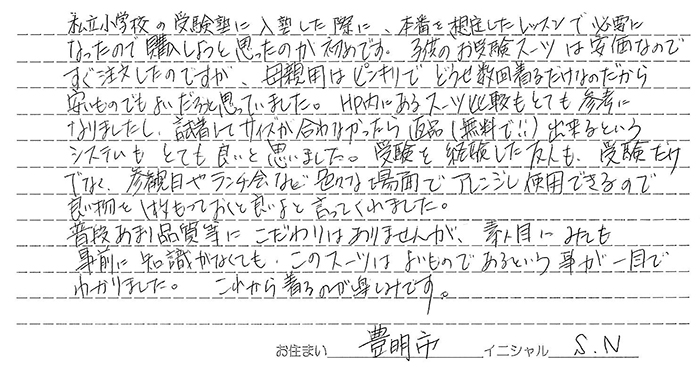 私立小学校の受験塾に入塾した際に、本番を想定したレッスンで必要に
なったので購入しようと思ったのが初めです。子供のお受験スーツは安価なので
すぐ注文したのですが、母親用はピンキリで どうせ数回着るだけなのだから
安いものでもよいだろうと思っていました。HP内にあるスーツ比較もとても参考に
なりましたし、試着してサイズが合わなかったら返品(無料で!!)出来るという
システムも とても良いと思いました。受験を経験した友人も、受験だけ
でなく、参観日やランチ会など色々な場面でアレンジし使用できるので
良い物を1つはもっておくと良いよと言ってくれました。
普段あまり品質等にこだわりはありませんが、素人目にみても
事前に知識がなくても、このスーツはよいものであるという事が一目で
わかりました。 これから着るのが楽しみです。
お住まい 豊明市 イニシャル S.N